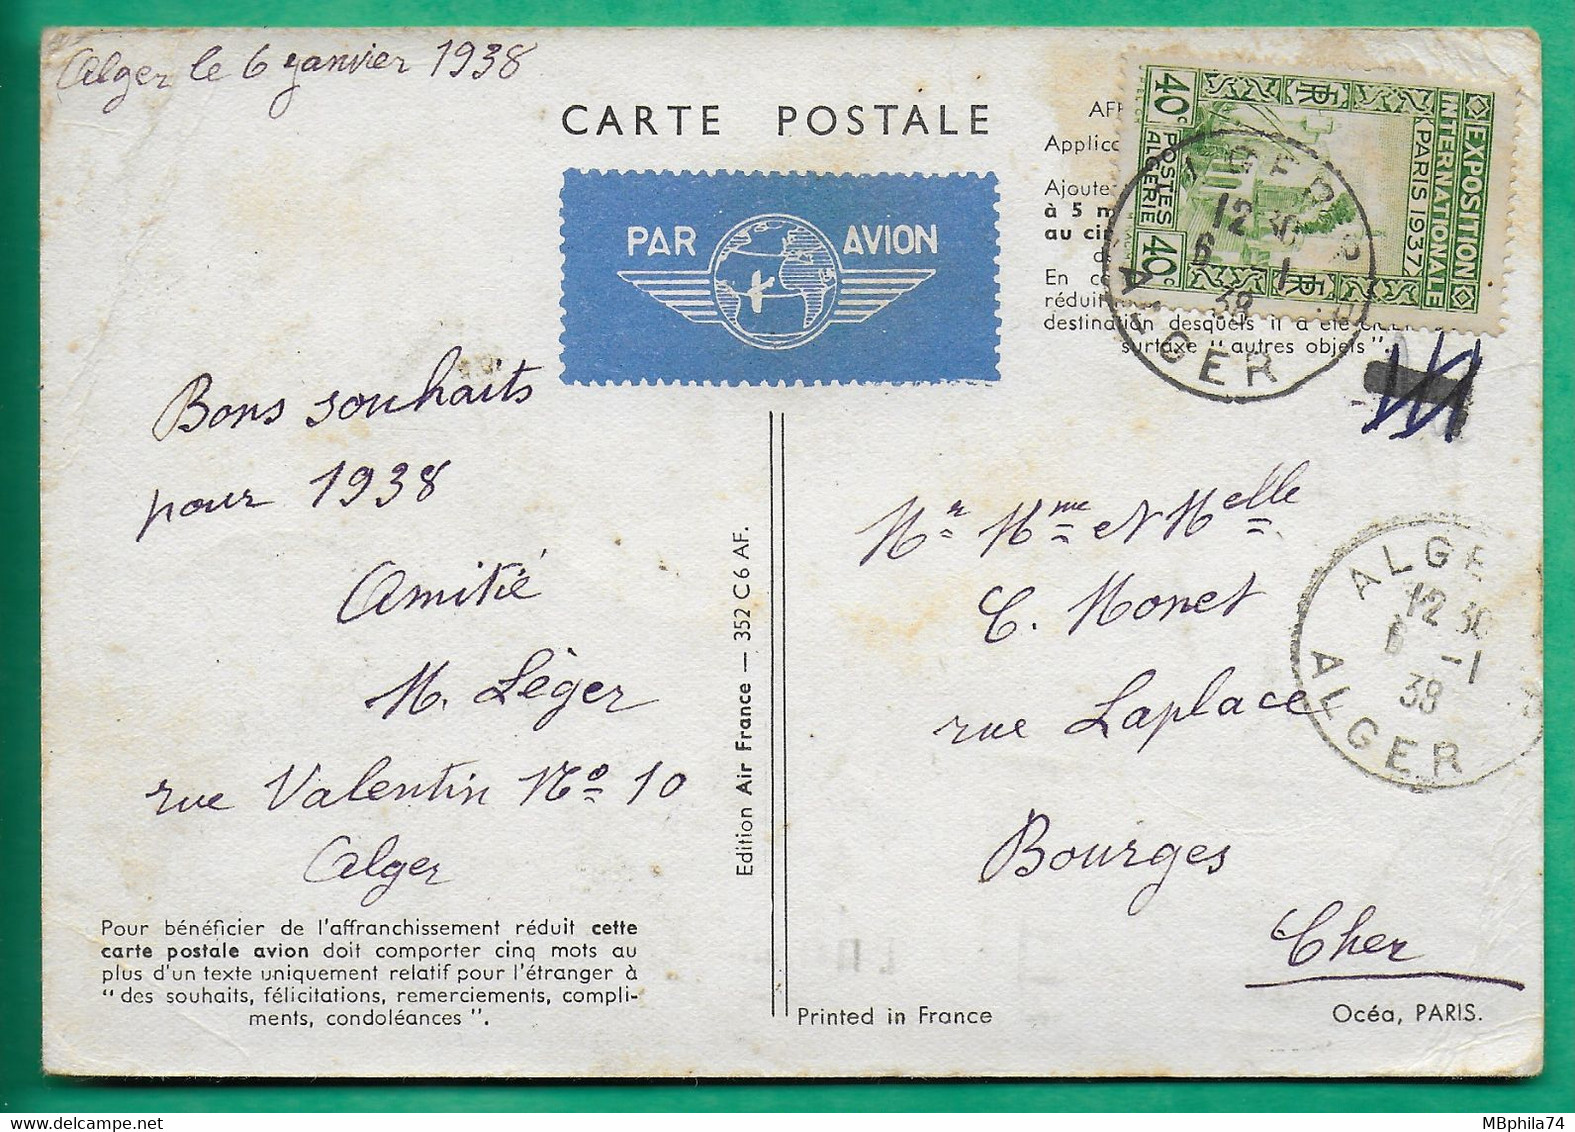 Alger le 6 janvier 1938
CARTE POSTALE
PAR AVION
EXPOSITION
INTERNATIONALE
PARIS 1937
POSTES
ALGERIE
40c 40c
RF RF
ALGER
12 30
6 -1
38
ALGER
Applic
Ajoute
à 5 m
au cin
d
En c
réduit
destination desquels il a été
surtaxe "autres objets".
Bons souhaits
pour 1938
Amitié
M. Léger
rue Valentin No 10
Alger
Pour bénéficier de l'affranchissement réduit cette
carte postale avion doit comporter cinq mots au
plus d'un texte uniquement relatif pour l'étranger à
"des souhaits, félicitations, remerciements, compli-
ments, condoléances".
Edition Air France — 352 C6 AF.
Mr Mme et Melle
C. Monet
rue Laplace
Bourges
Cher
ALGER
12 30
6 -1
38
ALGER
Printed in France
Océa, PARIS.
MBphila74